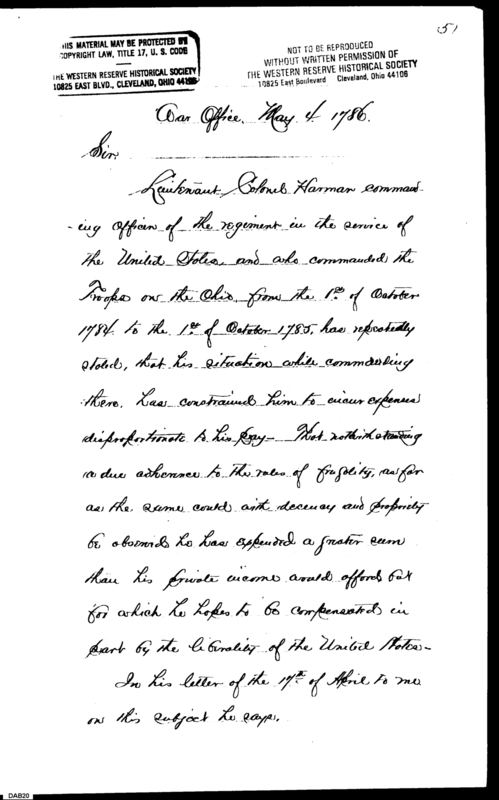 51
THIS MATERIAL MAY BE PROTECTED BY
COPYRIGHT LAW, TITLE 17, U. S. CODE
THE WESTERN RESERVE HISTORICAL SOCIETY
10825 EAST BLVD., CLEVELAND, OHIO 44106
NOT TO BE REPRODUCED
WITHOUT WRITTEN PERMISSION OF
THE WESTERN RESERVE HISTORICAL SOCIETY
10825 East Boulevard Cleveland, Ohio 44106
War Office. May 4. 1786.
Sir.
Lieutenant Colonel Harman command-
-ing officer of the regiment in the service of
the United States and who commanded the
Troops on the Ohio, from the 1st of October
1784 to the 1st of October 1785, has repeatedly
stated, that his situation while commanding
there, has constrained him to incur expenses
disproportionate to his pay – That notwithstanding
a due adherence to the rules of frugality, as far
as the same could with decency and propriety
be observed he has expended a greater sum
than his private income would afford but
for which he hopes to be compensated in
part by the liberality of the United States –
In his letter of the 17th of April to me
on this subject he says.
DAB20